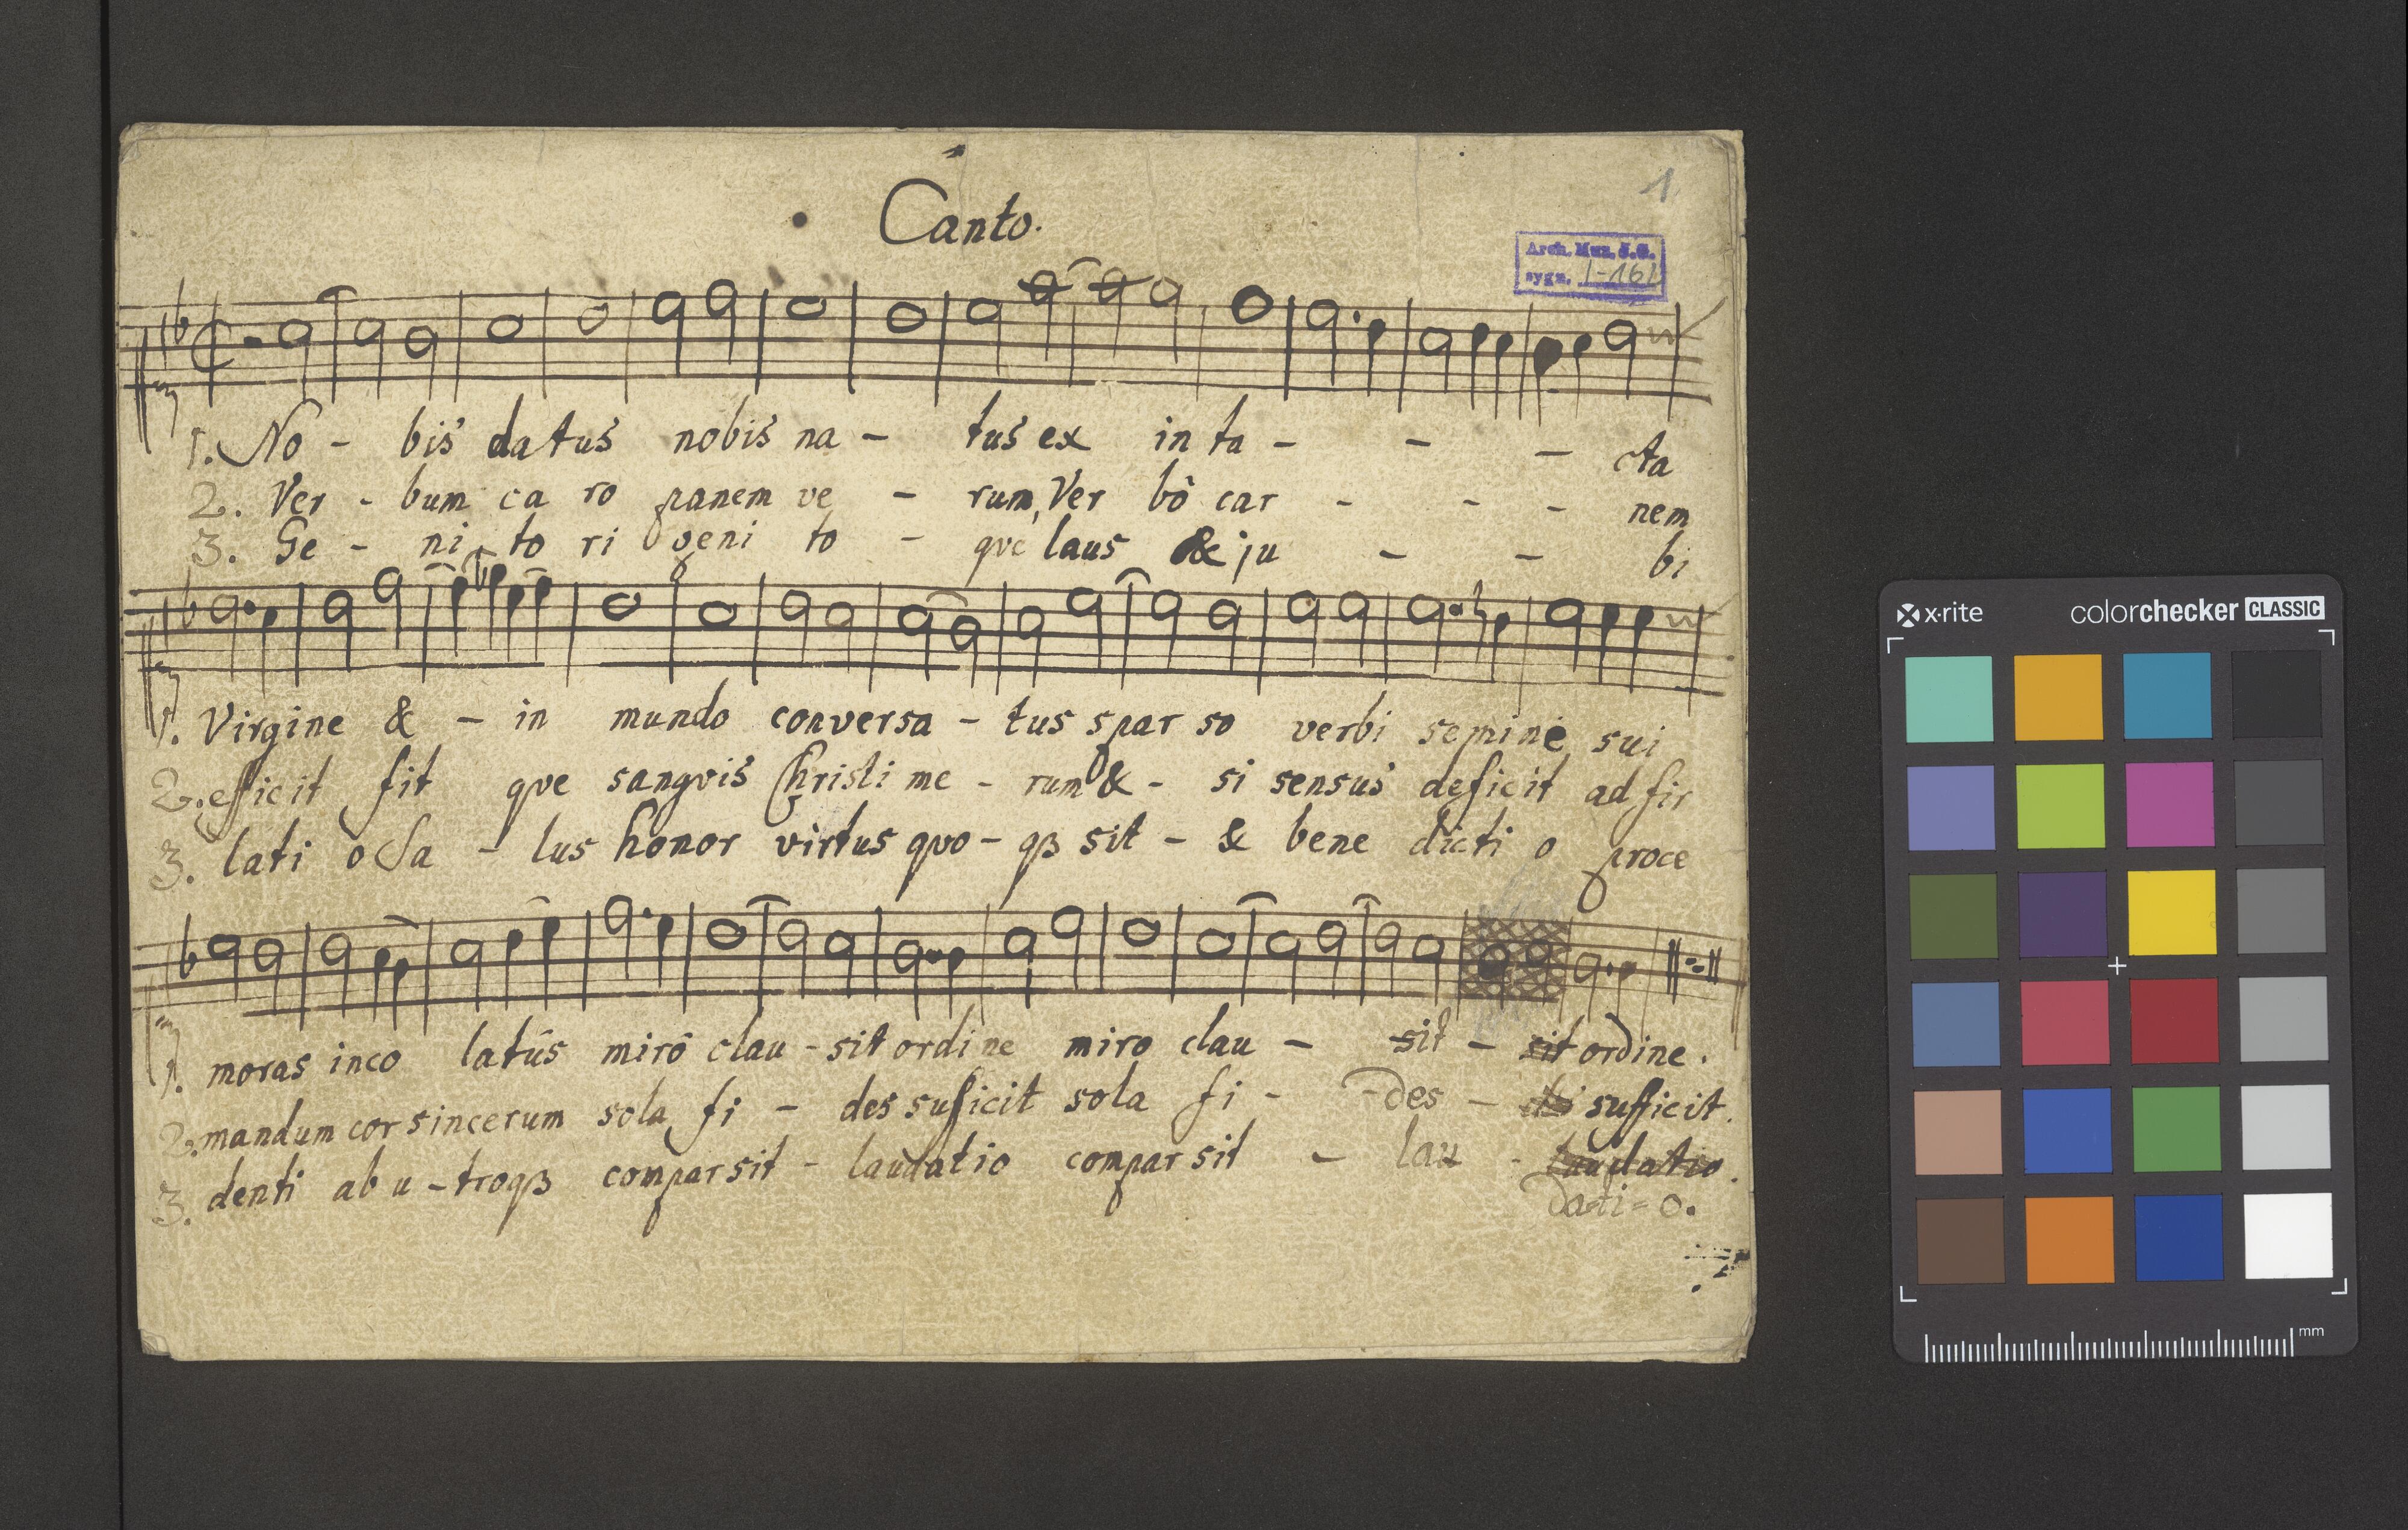 1
Canto.
Arch. Muz. J.G.
sygn. I-161
1. No - bis datus nobis na - tus ex in ta - - - cta
2. Ver - bum ca ro panem ve - rum, Ver bô car - - - nem
3. Ge - ni to ri geni to - qve laus & ju - - bi
1. Virgine & - in mundo conversa - tus spar so verbi semine sui
2. efficit fit qve sangvis Christi me - rum & - si sensus deficit ad fir
3. lati o Sa - lus honor virtus qvo - qꝫ sit - & bene dicti o proce
1. moras inco latûs mirô clau - sit ordine miro clau - sit - sit ordine.
2. mandum cor sincerum sola fi - des suficit sola fi - - des - sufficit.
3. denti ab u - troqꝫ compar sit - laudatio compar sit - lau - laudatio.
dati = o.
x·rite colorchecker CLASSIC
mm